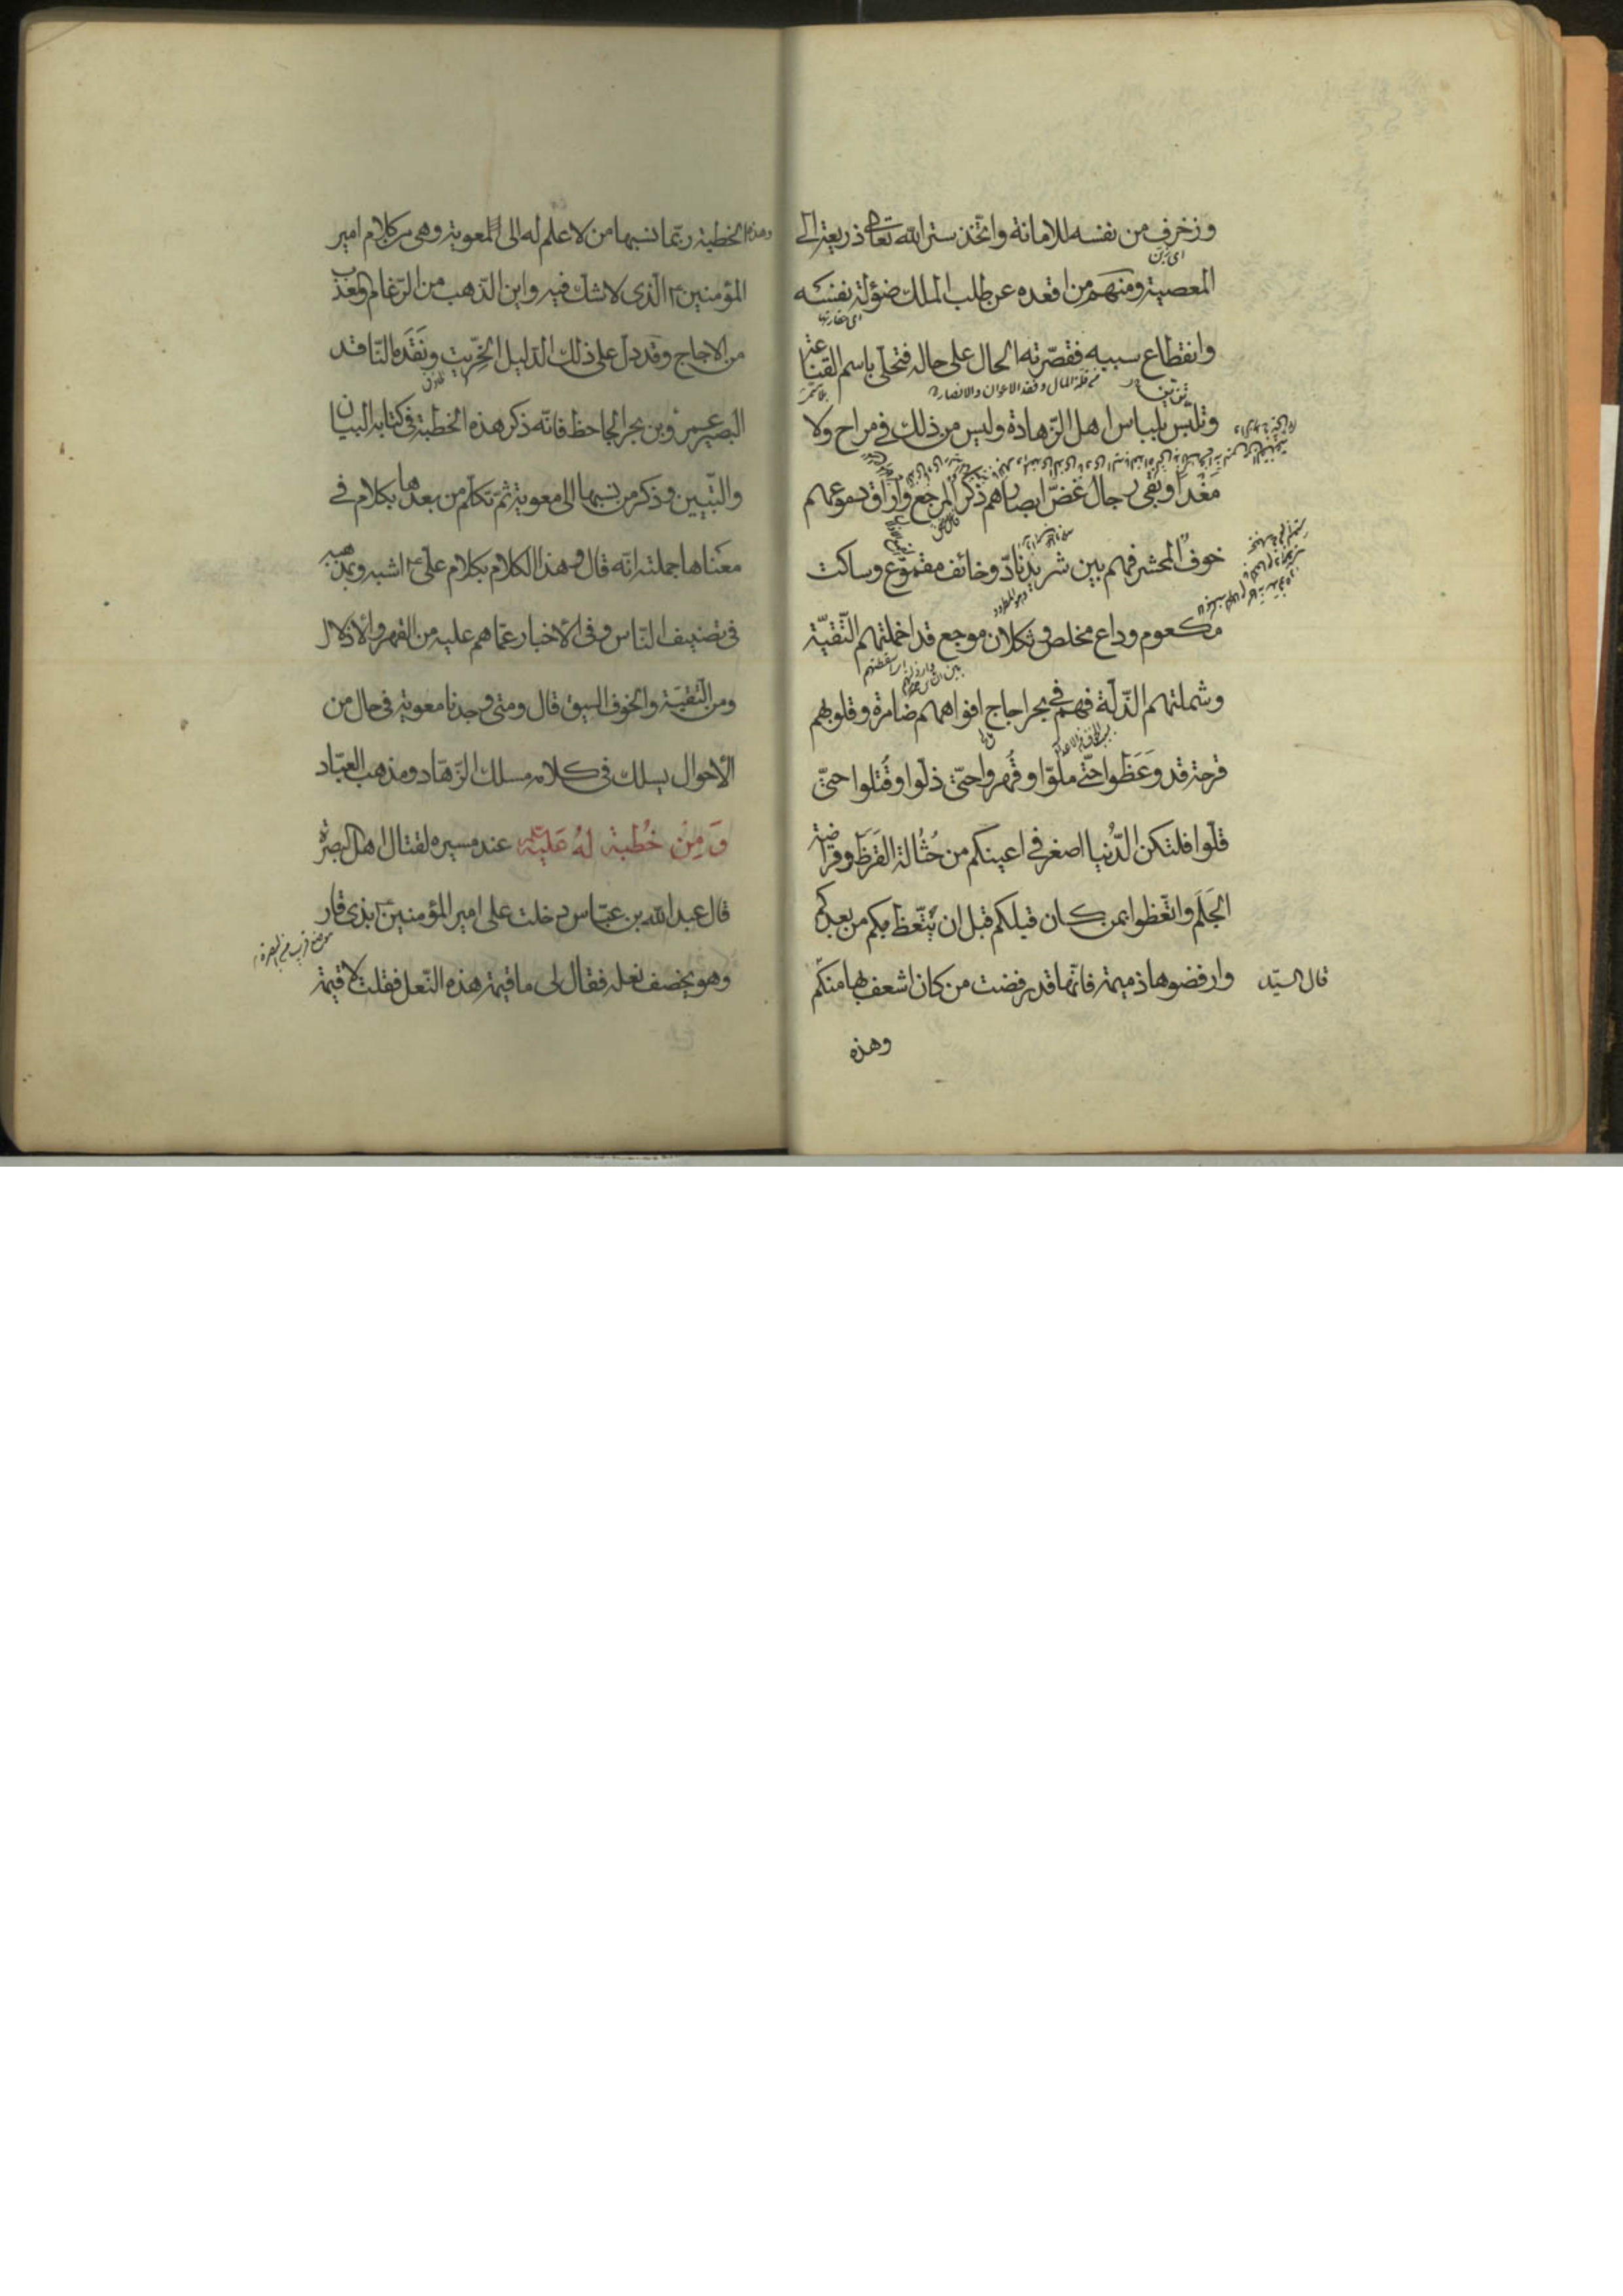 وزخرف من نفسه للامانة واتّخذ ستر الله تعالى ذريعة الى
اى زين
المعصية ومنهم من اقعده عن طلب الملك ضؤلة نفسه
اى حقارتها
وانقطاع سببه فقصّرته الحال على حاله فتحلّى باسم القناعة
من قلة المال وفقد الاعوان والانصار
وتلبّس بلباس اهل الزّهادة وليس من ذلك فى مراح ولا
مَغْدًا وبقى رجال غضّ ابصارهم ذكر المرجع واراق دموعهم
خوف المحشر فهم بين شريد نادّ وخائف مقموع وساكت
مكعوم وداع مخلص وثكلان موجع قد اخملتهم التّقيّة
وشملتهم الذّلّة فهم فى بحر اجاج افواههم ضامزة وقلوبهم
قرحة قد وَعَظوا حتّى ملّوا وقُهروا حتّى ذلّوا وقُتلوا حتّى
قلّوا فلتكن الدّنيا اصغر فى اعينكم من حُثالة القَرَظ وقراضة
الجَلَم واتّعظوا بمن كان قبلكم قبل ان يتّعظ بكم من بعدكم
وارفضوها ذميمة فانّها قد رفضت من كان اشعف بها منكم
قال السيّد
وهذه
وهذه الخطبة ربّما نسبها من لا علم له الى المعوية وهى من كلام امير
المؤمنين ع الّذى لا شك فيه واين الذّهب من الرّغام والعذب
من الاجاج وقد دلّ على ذلك الدّليل الخِرّيت ونَقَدَه النّاقد
البصير عمرو بن بحر الجاحظ فانّه ذكر هذه الخطبة فى كتابه البيان
والتّبيين وذكر من نسبها الى معوية ثمّ تكلّم من بعدها بكلام فى
معناها جملته انّه قال وهذا الكلام بكلام علىّ ع اشبه وبمذهبه
فى تصنيف النّاس وفى الاخبار عمّا هم عليه من القهر والاذلال
ومن التّقيّة والخوف اليق قال ومتى وجدنا معوية فى حال من
الأحوال يسلك فى كلامه مسلك الزّهّاد ومذهب العبّاد
وَ مِنْ خُطبة لهُ عَليْه عند مسيره لقتال اهل البصرة
قال عبد الله بن عبّاس دخلت على امير المؤمنين ع بذى قار
موضع قريب من البصرة
وهو يخصف نعله فقال لى ما قيمة هذه النّعل فقلت لا قيمة